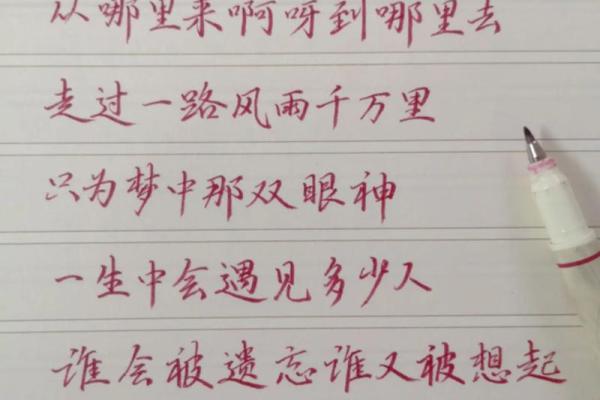 从哪里来啊呀到哪里去
走过一路风雨千万里
只为梦中那双眼神
一生中会遇见多少人
谁会被遗忘谁又被想起